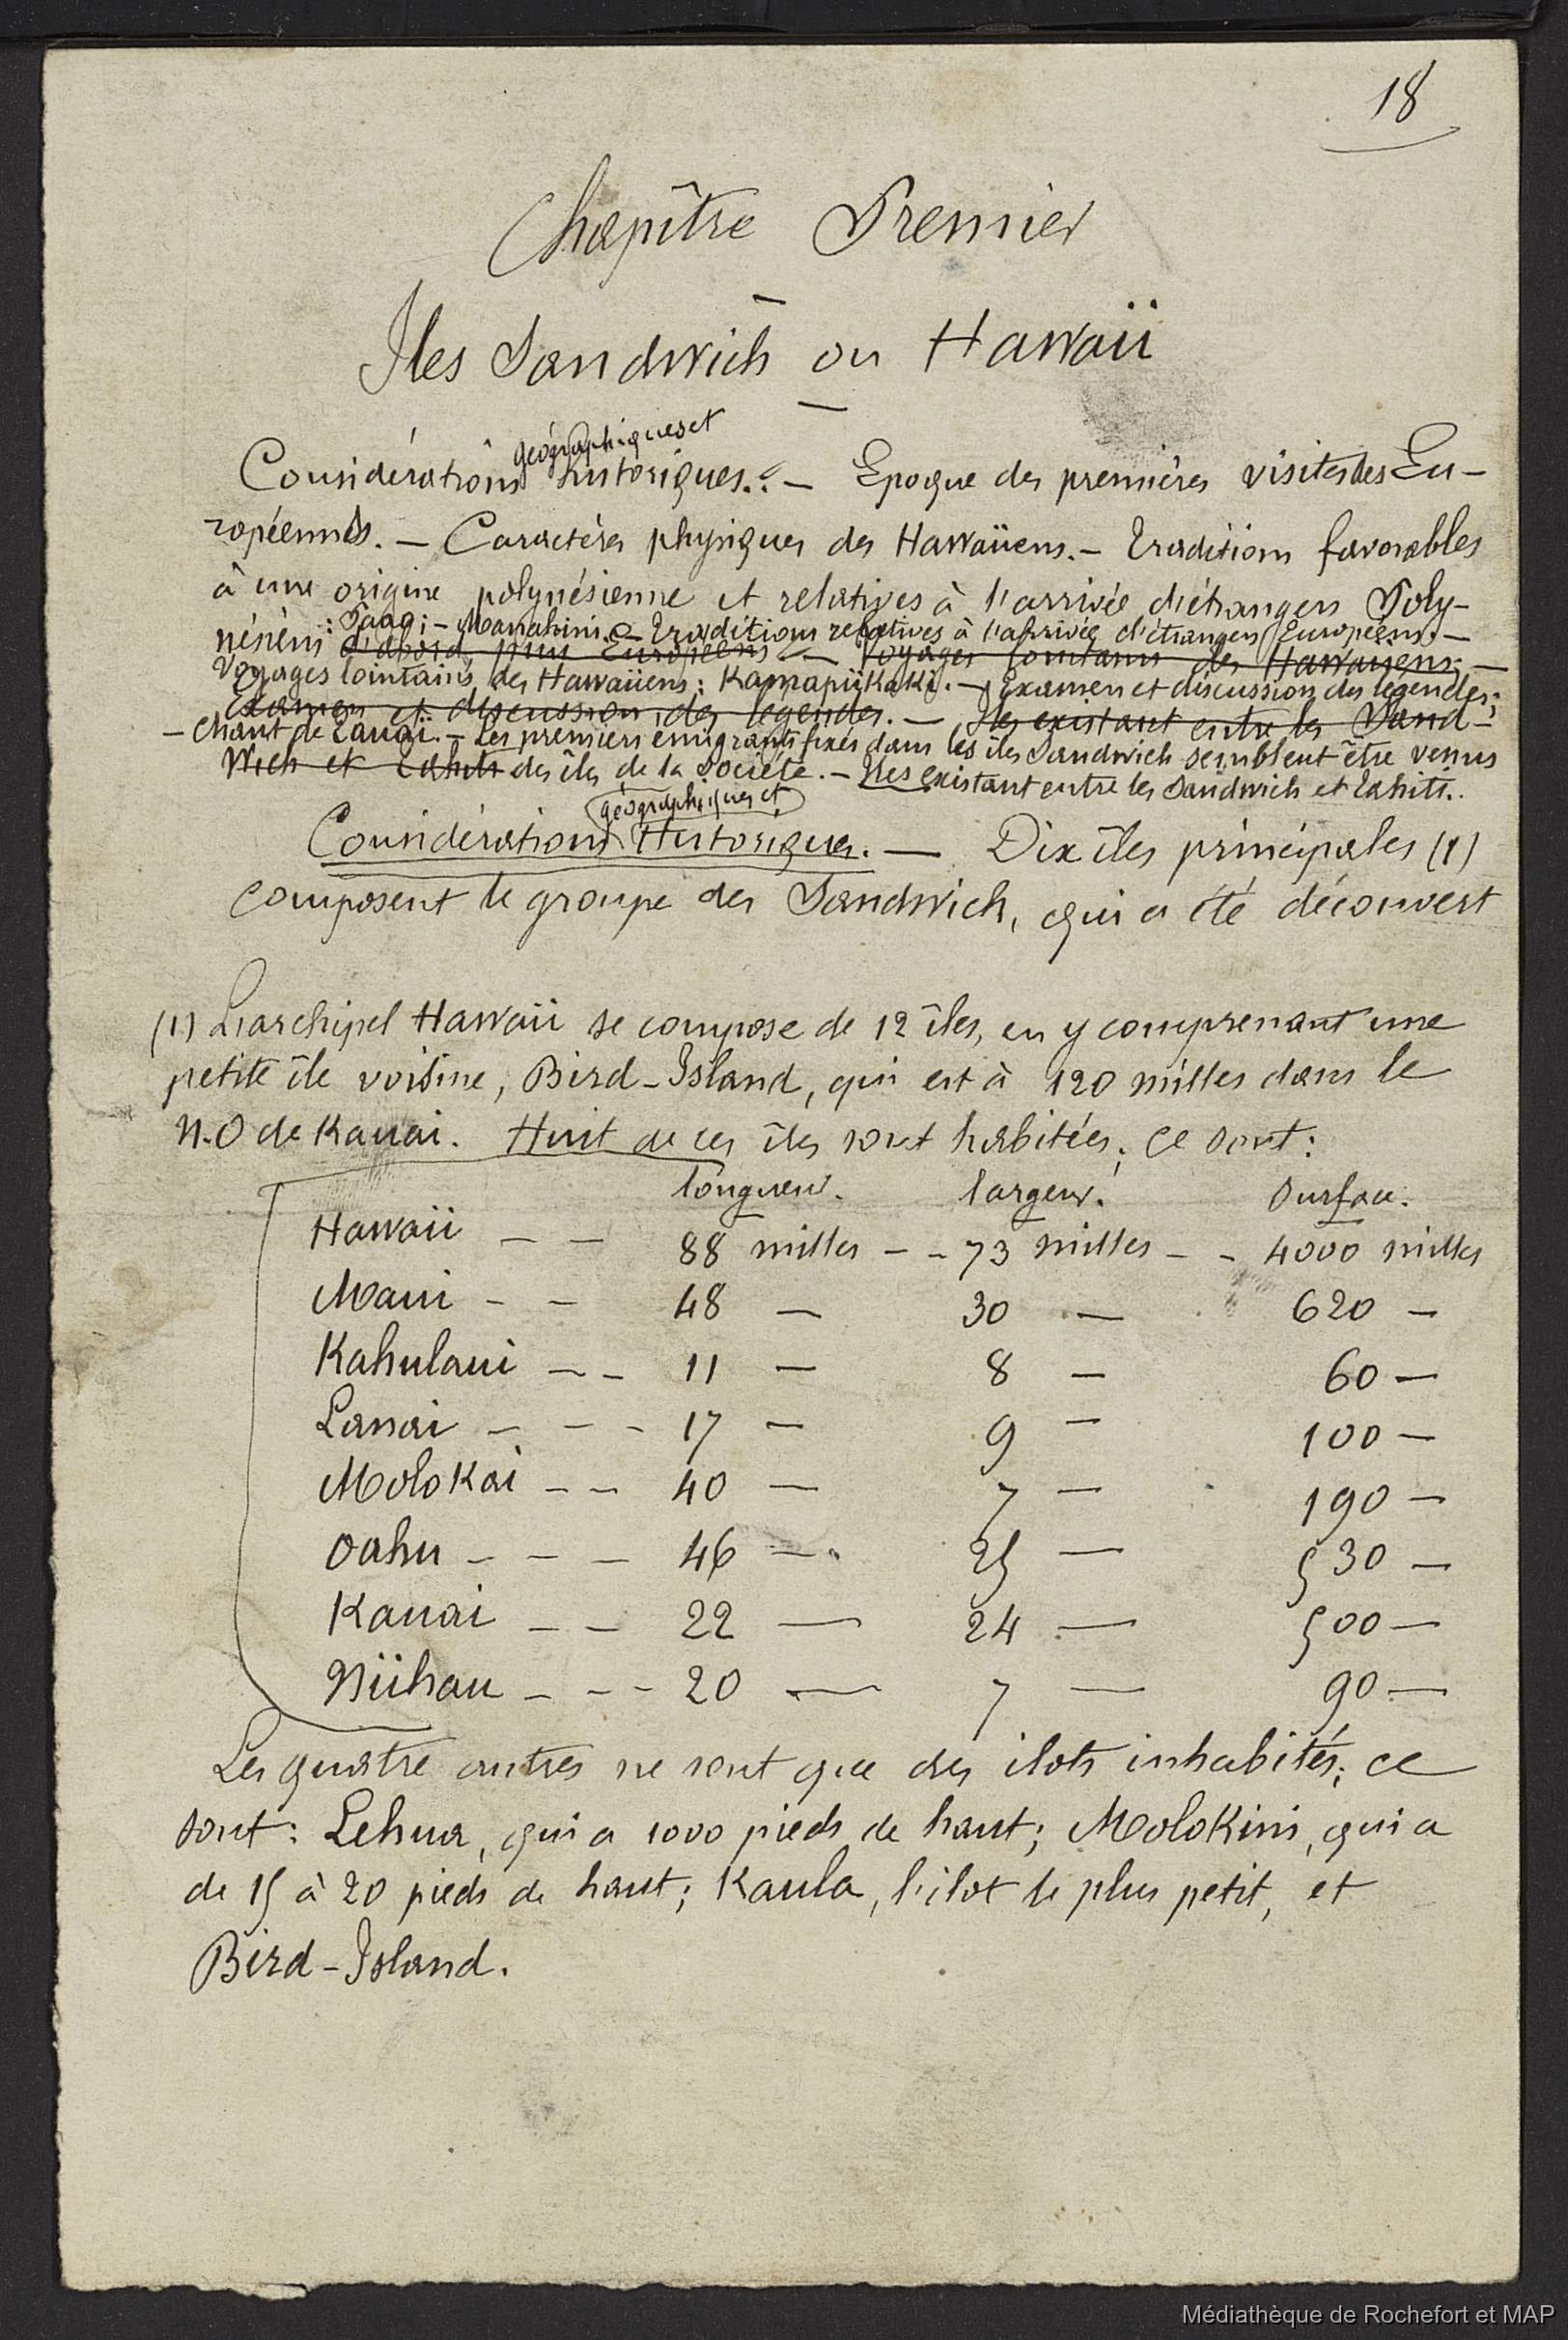 18
Chapître Premier
Iles Sandwich ou Hawaii
géographiques et
Considérations historiques. — Epoque des premières visites des Eu-
ropéennes. — Caractères physiques des Hawaiiens. — Traditions favorables
à une origine polynésienne et relatives à l'arrivée d'étrangers Poly-
: Paao; — Manahini. — Traditions relatives à l'arrivée d'étrangers Européens. —
nésiens d'abord, puis Européens. — Voyages lointains des Hawaiiens. —
Voyages lointains des Hawaiiens : Kamapiikaki. — Examen et discussion des légendes;
Examen et discussion des légendes. — Iles existant entre les Sand-
— chant de Kauaï. — Les premiers émigrants fixés dans les îles Sandwich semblent être venus
wich et Tahiti des îles de la Société. — Iles existant entre les Sandwich et Tahiti.
géographiques et
Considérations Historiques. — Dix îles principales (1)
composent le groupe des Sandwich, qui a été découvert
(1) L'archipel Hawaii se compose de 12 îles, en y comprenant une
petite île voisine, Bird-Island, qui est à 120 milles dans le
N.O de Kauai. Huit de ces îles sont habitées; ce sont:
longueur. largeur. Surface.
Hawaii — — 88 milles — — 73 milles — — 4000 milles
Maui — — 48 — 30 — 620 —
Kahulaui — — 11 — 8 — 60 —
Lanai — — — 17 — 9 — 100 —
Molokai — — 40 — 7 — 190 —
Oahu — — — 46 — 25 — 530 —
Kauai — — 22 — 24 — 500 —
Niihau — — — 20 — 7 — 90 —
Les quatre autres ne sont que des ilots inhabités; ce
sont: Lehua, qui a 1000 pieds de haut; Molokini, qui a
de 15 à 20 pieds de haut; Kaula, l'ilot le plus petit, et
Bird-Island.
Médiathèque de Rochefort et MAP